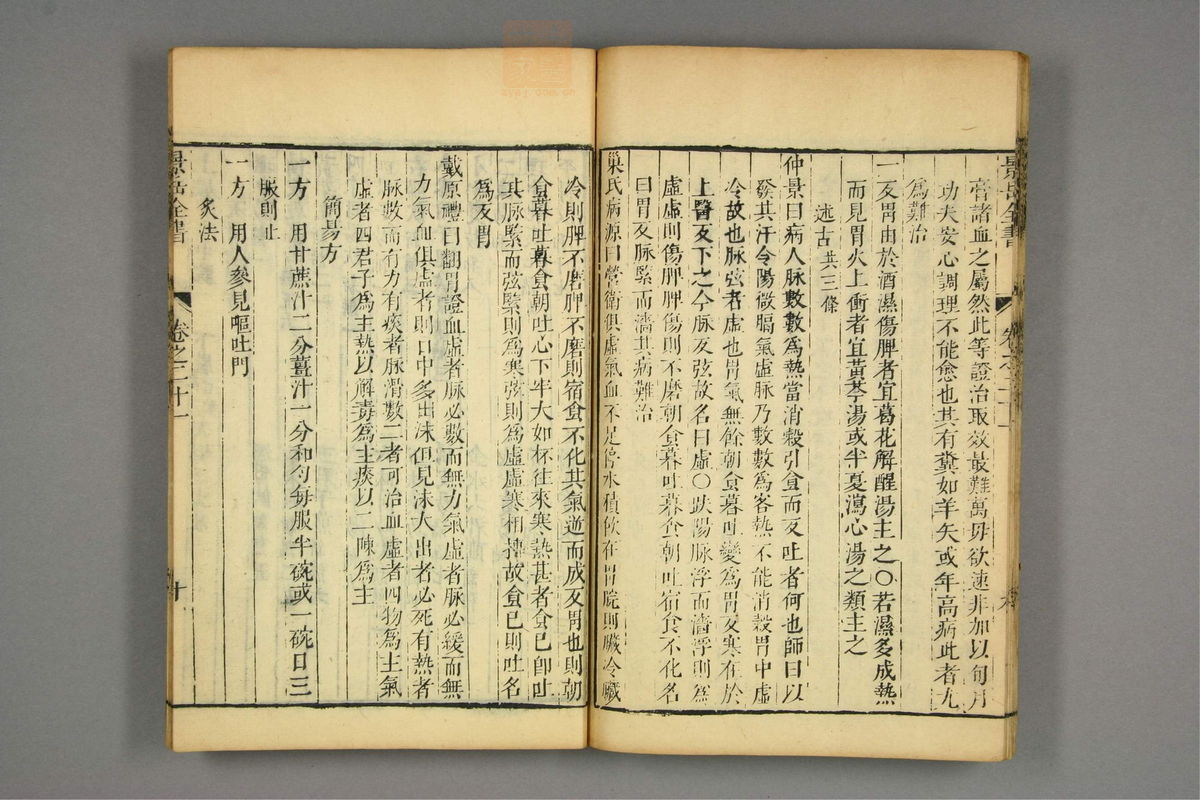 景岳全書 卷之二十一
膏諸血之屬然此等證治取效最難萬毋欲速非加以旬月
功夫安心調理不能愈也其有糞如羊矢或年高病此者尤
為難治
一反胃由於酒濕傷脾者宜葛花解酲湯主之〇若濕多成熱
而見胃火上衝者宜黃芩湯或半夏瀉心湯之類主之
述古共三條
仲景曰病人脉數數為熱當消穀引食而反吐者何也師曰以
發其汗令陽微膈氣虛脉乃數數為客熱不能消穀胃中虛
冷故也脉弦者虛也胃氣無餘朝食暮吐變為胃反寒在於
上醫反下之今脉反弦故名曰虛〇趺陽脉浮而濇浮則為
虛虛則傷脾脾傷則不磨朝食暮吐暮食朝吐宿食不化名
曰胃反脉緊而濇其病難治
巢氏病源曰營衛俱虛氣血不足停水積飲在胃脘則臟冷臟
冷則脾不磨脾不磨則宿食不化其氣逆而成反胃也則朝
食暮吐暮食朝吐心下牢大如杯往來寒熱甚者食已卽吐
其脉緊而弦緊則為寒弦則為虛虛寒相搏故食已則吐名
為反胃
戴原禮曰翻胃證血虛者脉必數而無力氣虛者脉必緩而無
力氣血俱虛者則口中多出沫但見沫大出者必死有熱者
脉數而有力有痰者脉滑數二者可治血虛者四物為主氣
虛者四君子為主熱以解毒為主痰以二陳為主
簡易方
一方 用甘蔗汁二分薑汁一分和勻每服半碗或一碗日三
服則止
一方 用人參見嘔吐門
炙法
景岳全書 卷之二十一 十